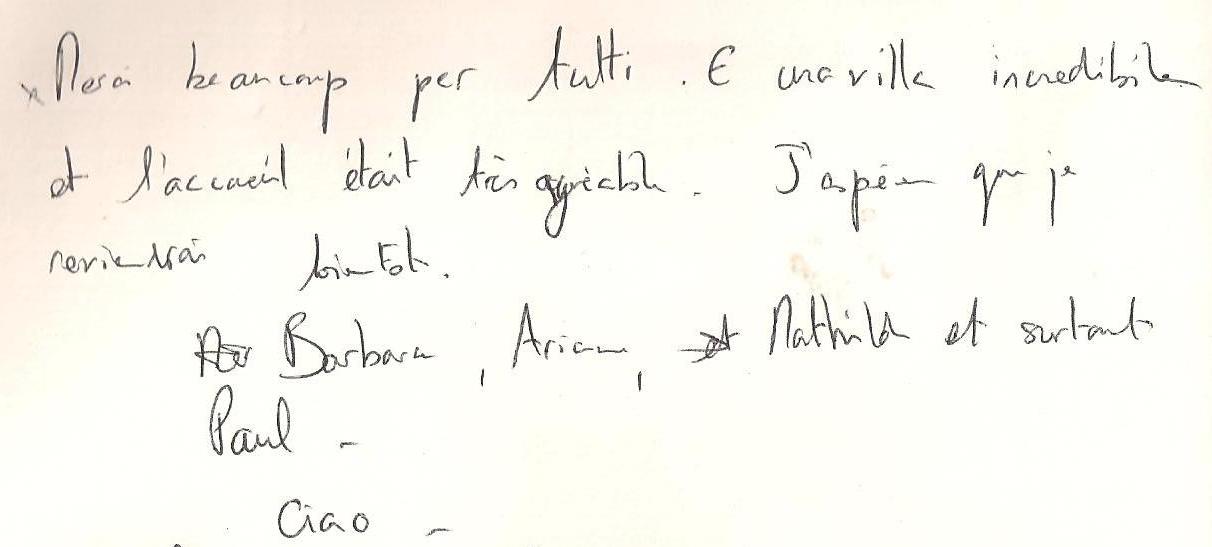 Merci beaucoup per tutti. E una villa incredibile
et l'accueil était très agréable. J'espère que je
reviendrai bientôt.
Barbara, Ariane, Mathilde et surtout
Paul -
Ciao -